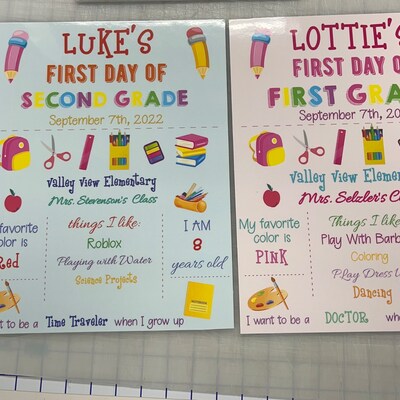 LUKE'S
FIRST DAY OF
SECOND GRADE
September 7th, 2022
Valley View Elementary
Mrs. Stevenson's Class
favorite
color is
Red
things I like:
Roblox
Playing with Water
Science Projects
I AM
8
years old
to be a Time Traveler when I grow up
LOTTIE'S
FIRST DAY OF
FIRST GRA
September 7th, 20
Valley View Elementa
Mrs. Selzler's Clas
My favorite
color is
PINK
Things I like:
Play With Barb
Coloring
Play Dress U
Dancing
I want to be a DOCTOR whe